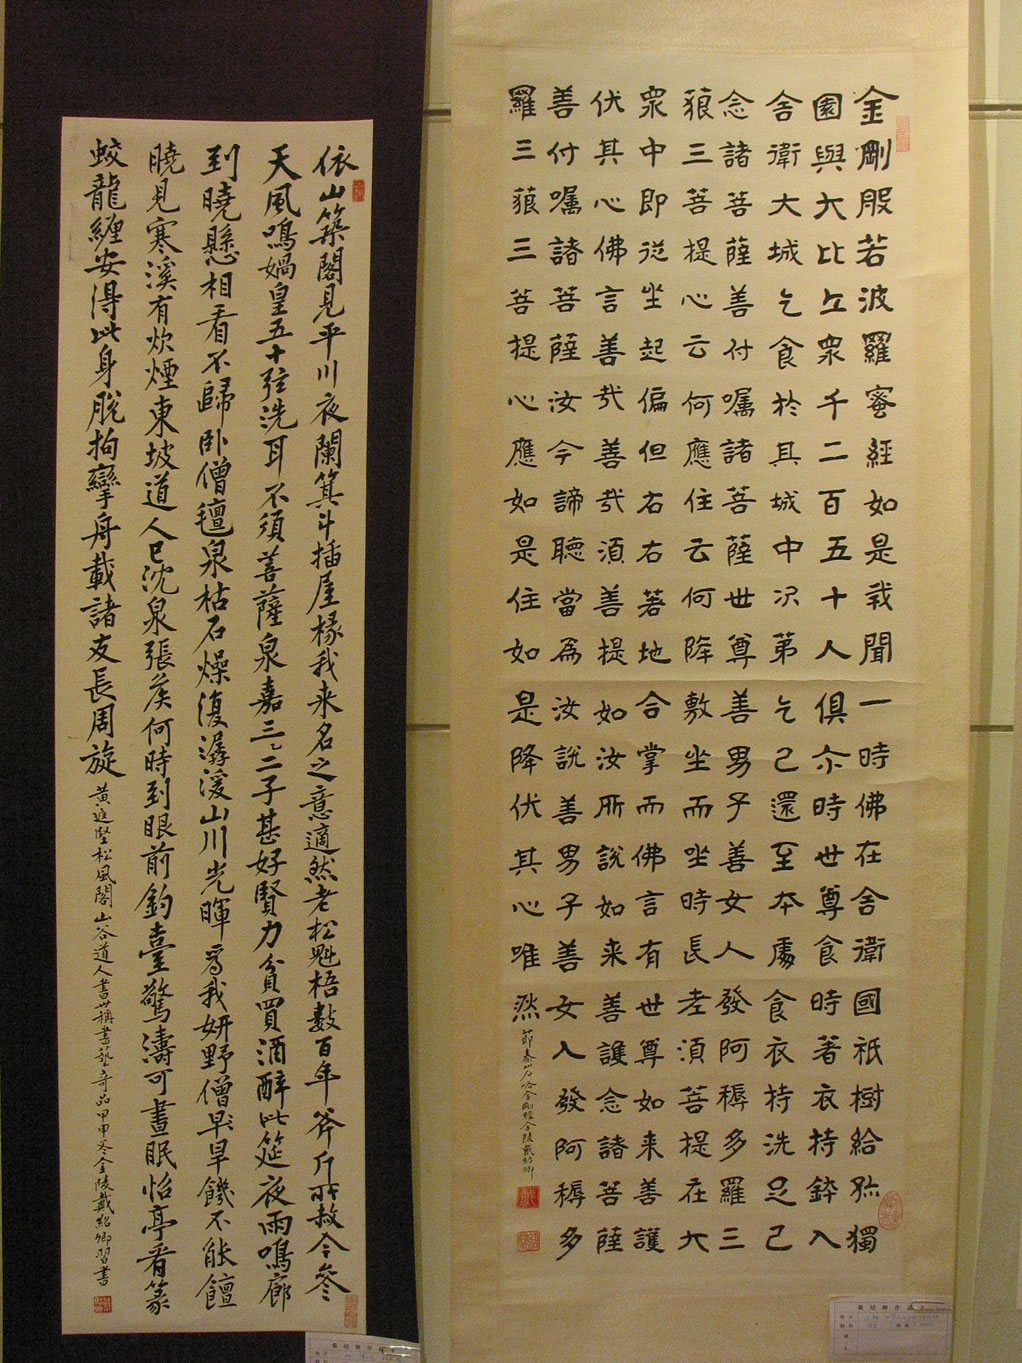 金剛般若波羅蜜經如是我聞一時佛在舍衛國祇樹給孤獨
園與大比丘眾千二百五十人俱尒時世尊食時著衣持鉢入
舍衛大城乞食於其城中次第乞已還至本處食衣持洗足已
念諸菩薩善付囑諸菩薩世尊善男子善女人發阿耨多羅三
藐三菩提心云何應住云何降敷坐而坐時長老須菩提在大
眾中即從坐起偏但右右著地合掌而佛言有世尊如来善護
伏其心佛言善哉善哉須菩提如汝所說如来善護念諸菩薩
善付囑諸菩薩汝今諦聽當為汝說善男子善女人發阿耨多
羅三藐三菩提心應如是住如是降伏其心唯然
節泰山石峪金剛經金陵戴紹卿
依山築閣見平川夜闌箕斗插屋椽我来名之意適然老松魁梧數百年斧斤所赦今參
天風鳴媧皇五十弦洗耳不須菩薩泉嘉三二子甚好賢力貧買酒醉此筵夜雨鳴廊
到曉懸相看不歸卧僧氈泉枯石燥復潺湲山川光暉為我妍野僧早旱饑不能饘
曉見寒溪有炊煙東坡道人已沈泉張侯何時到眼前釣臺驚濤可畫眠怡亭看篆
蛟龍纏安得此身脫拘攣舟載諸友長周旋
黃庭堅松風閣山谷道人書世稱書藝奇品甲申冬金陵戴紹卿習書